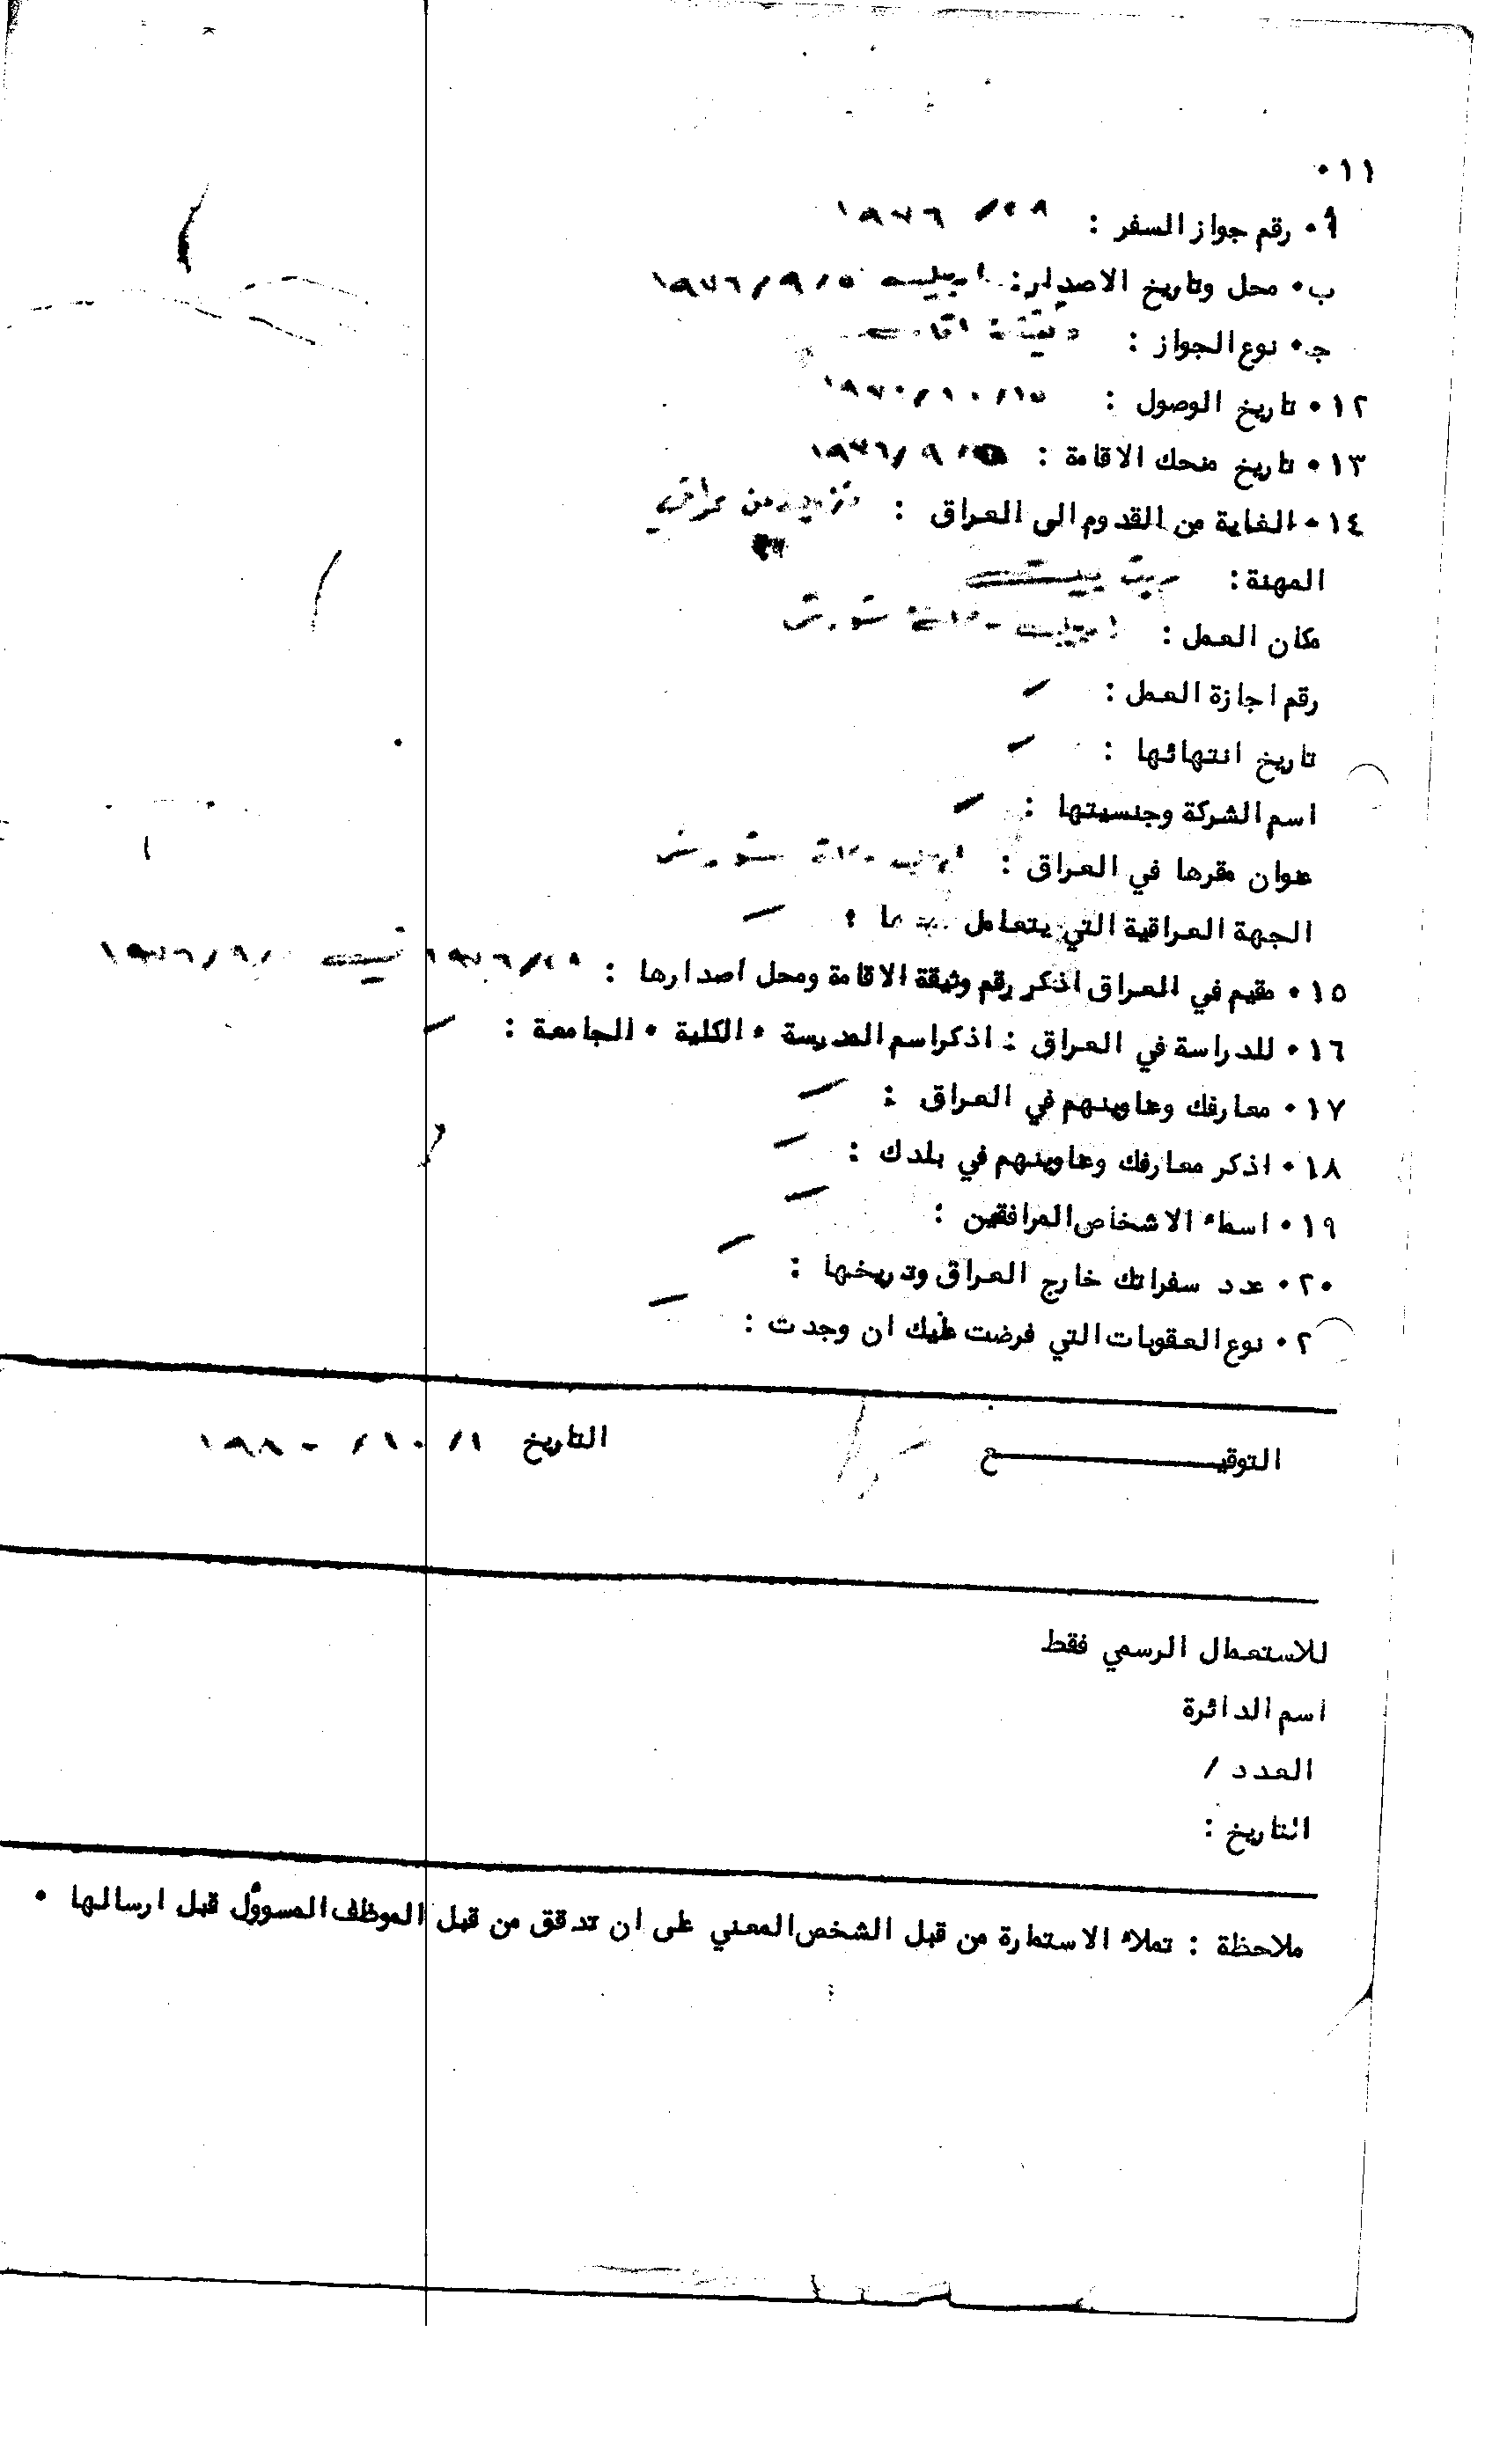 ١١٠
أ٠ رقم جواز السفر : ٢٩/ ١٩٧٦
ب٠ محل وتاريخ الاصدار: ٥/ ٩/ ١٩٧٦
ج٠ نوع الجواز :
١٢٠ تاريخ الوصول : ١٥/ ١٠/ ١٩٧٠
١٣٠ تاريخ منحك الاقامة : /٩ /١٩٧٦
١٤٠ الغاية من القدوم الى العراق :
المهنة :
مكان العمل :
رقم اجازة العمل : -
تاريخ انتهائها : -
اسم الشركة وجنسيتها : -
عنوان مقرها في العراق :
الجهة العراقية التي يتعامل : -
١٥٠ مقيم في العراق اذكر رقم وثيقة الاقامة ومحل اصدارها : ٢٩/ ١٩٧٦ /٩/ ١٩٧٦
١٦٠ للدراسة في العراق : اذكر اسم المدرسة ٠ الكلية ٠ الجامعة : -
١٧٠ معارفك وعناوينهم في العراق : -
١٨٠ اذكر معارفك وعناوينهم في بلدك : -
١٩٠ اسماء الاشخاص المرافقين : -
٢٠٠ عدد سفراتك خارج العراق وتاريخها : -
٢٠ نوع العقوبات التي فرضت عليك ان وجدت : -
التوقيـــــــع التاريخ ١/ ١٠/ ١٩٨٠
للاستعمال الرسمي فقط
اسم الدائرة
العدد /
التاريخ :
ملاحظة : تملاء الاستمارة من قبل الشخص المعني على ان تدقق من قبل الموظف المسوؤل قبل ارسالها ٠